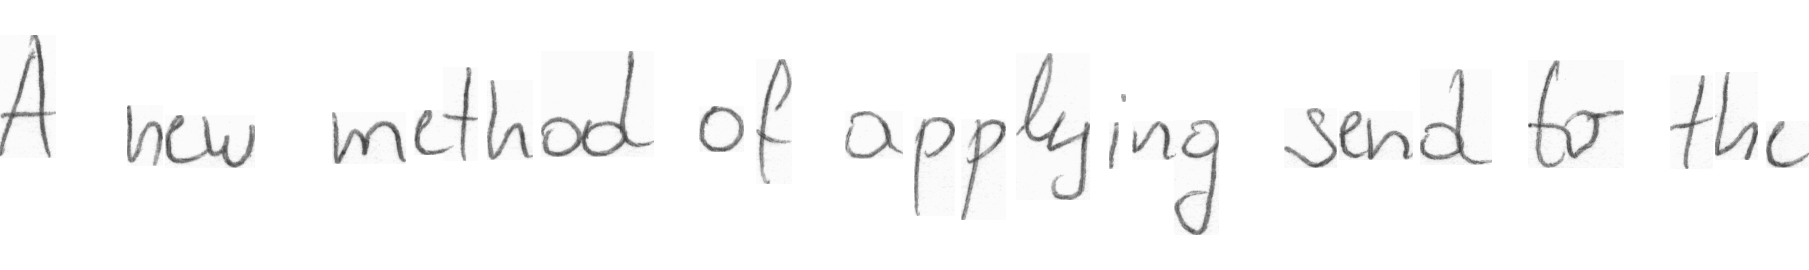 A new method of applying send to the